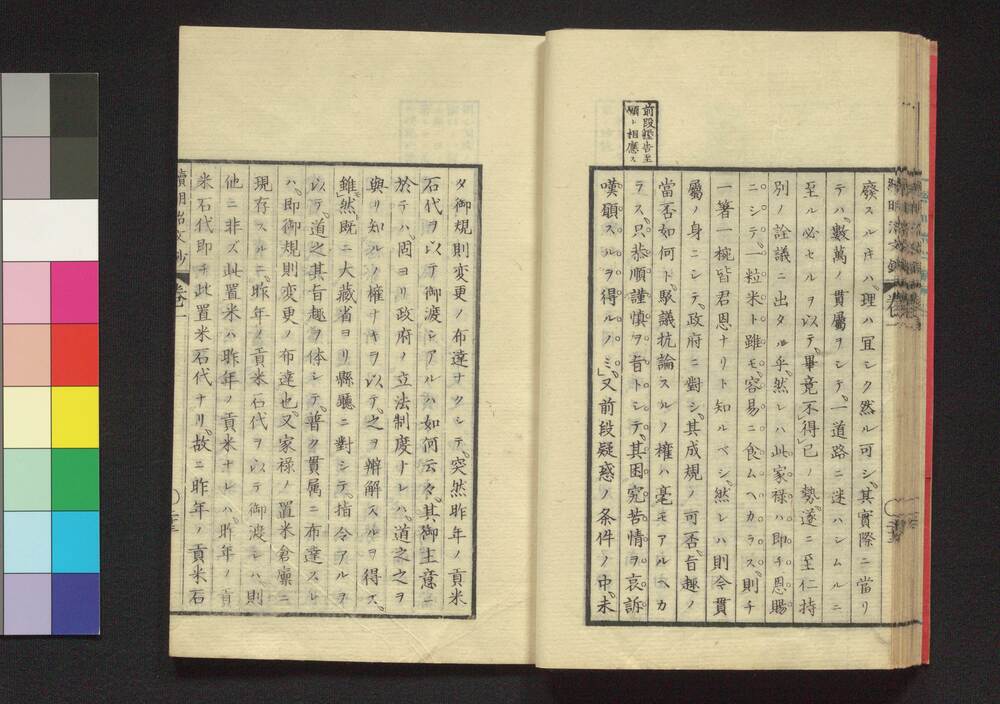 前段證告至
願ト相應ス
廢スルキハ。理ハ冝シク然ル可シ。其實際ニ當リ
テハ。數萬ノ貫屬ヲシテ。一道路ニ迷ハシムルニ
至ル必セルヲ以テ。畢竟不得已ノ勢。遂ニ至仁持
別ノ詮議ニ出タル乎。然レハ此家禄ハ即チ恩賜
ニシテ。一粒米ト雖モ。容易ニ食ムヘカラス。則チ
一箸一椀皆君恩ナリト知ルベシ。然レハ則令貫
屬ノ身ニシテ。政府ニ對シ。其成規ノ可否。旨趣ノ
當否如何ト。駁議抗論スルノ權ハ。毫モアルヘカ
ラス。只恭順謹慎ヲ旨トシテ。其困究苦情ヲ哀訴
嘆願スルヲ得ルノミ。又前段疑惑ノ条件ノ中。未
タ御規則変更ノ布達ナクシテ。突然昨年ノ貢米
石代ヲ以テ御渡シアルハ如何云々。其御主意ニ
於テハ。固ヨリ政府ノ立法制度ナレハ。道之之ヲ
與リ知ルノ權ナキヲ以テ。之ヲ辨解スルヲ得ス。
雖然。既ニ大藏省ヨリ縣聽ニ對シテ。指令アルヲ
以テ。道之其旨趣ヲ体シテ。普ク貫属ニ布達スレ
ハ。即御規則変更ノ布達也。又家禄ノ置米倉廩ニ
現存スルニ。昨年ノ貢米石代ヲ以テ御渡シハ。則
他ニ非ズ此置米ハ昨年ノ貢米ナレハ。昨年ノ貢
米石代即チ此置米石代ナリ。故ニ昨年ノ貢米石